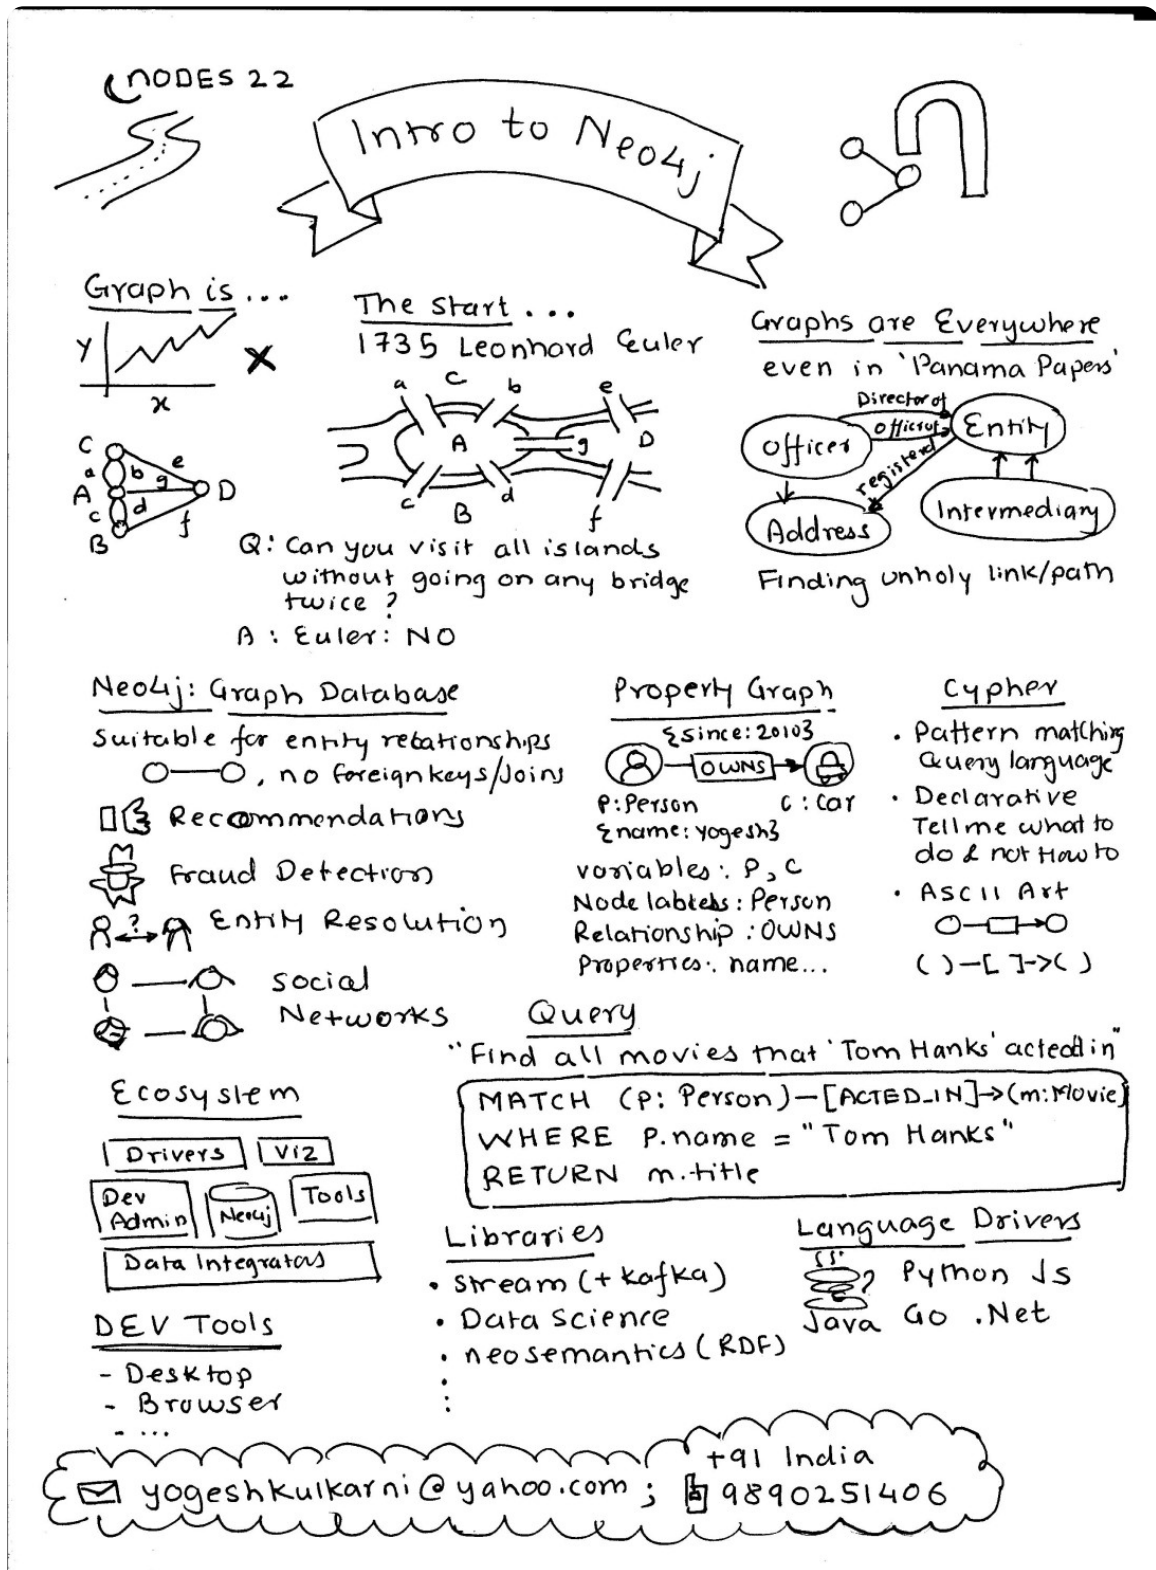 NODES 22
Intro to Neo4j
Graph is ...
y
x
C
a
b
e
A
g
D
c
d
f
B
The start ...
1735 Leonhard Euler
a
C
b
e
A
g
D
c
B
d
f
Q: Can you visit all islands
without going on any bridge
twice?
A: Euler: NO
Graphs are Everywhere
even in 'Panama Papers'
Director of
Officer
Entity
registered
Address
Intermediary
Finding unholy link/path
Neo4j: Graph Database
Suitable for entity relationships
, no foreign keys/Joins
Recommendations
Fraud Detection
?
Entity Resolution
Social
Networks
Property Graph
{since:2010}
OWNS
P:Person
C:Car
{name:yogesh}
variables: P, C
Node labels: Person
Relationship: OWNS
Properties: name...
Cypher
• Pattern matching
Query language
• Declarative
Tell me what to
do & not How to
• ASCII Art
( )-[ ]->( )
Query
"Find all movies that 'Tom Hanks' acted in"
MATCH (p: Person)-[ACTED_IN]->(m:Movie)
WHERE p.name = "Tom Hanks"
RETURN m.title
Ecosystem
Drivers
Viz
Dev
Admin
Neo4j
Tools
Data Integrators
DEV Tools
- Desktop
- Browser
- ...
Libraries
• Stream (+ kafka)
• Data Science
• neosemantics (RDF)
Language Drivers
Python Js
Java Go .Net
+91 India
yogeshkulkarni@yahoo.com ; 9890251406